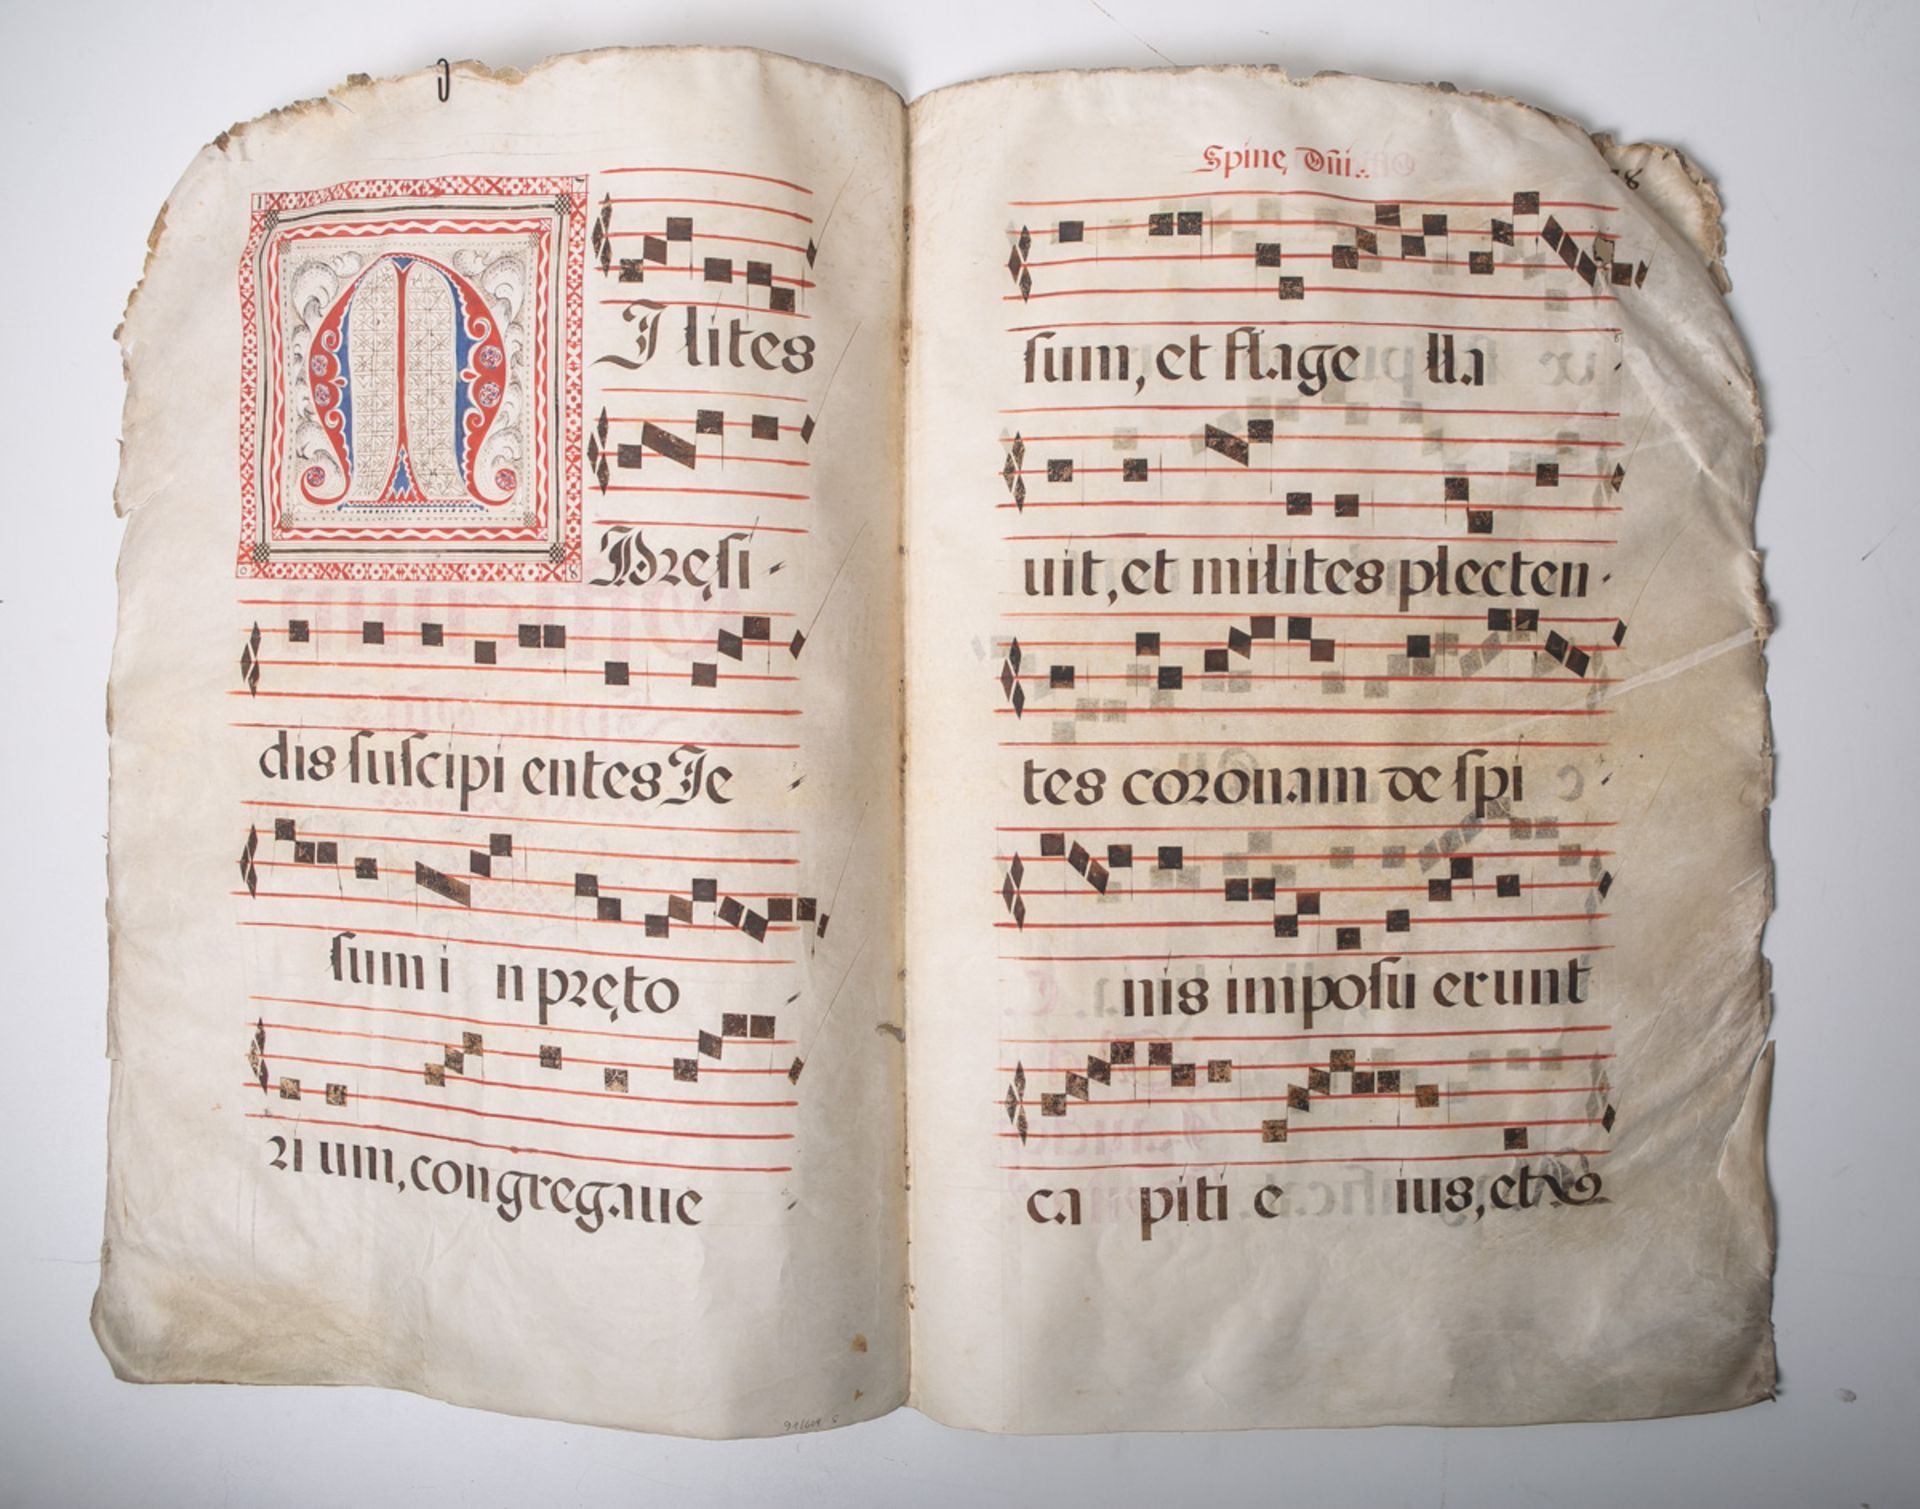 MIlites
Pręsi-
dis suscipientes Je
sum in pręto
rium, congregaue
Spinę Dñi.
8
sum, et flagella
uit, et milites plecten-
tes coronam de spi
nis imposuerunt
capiti eius, et